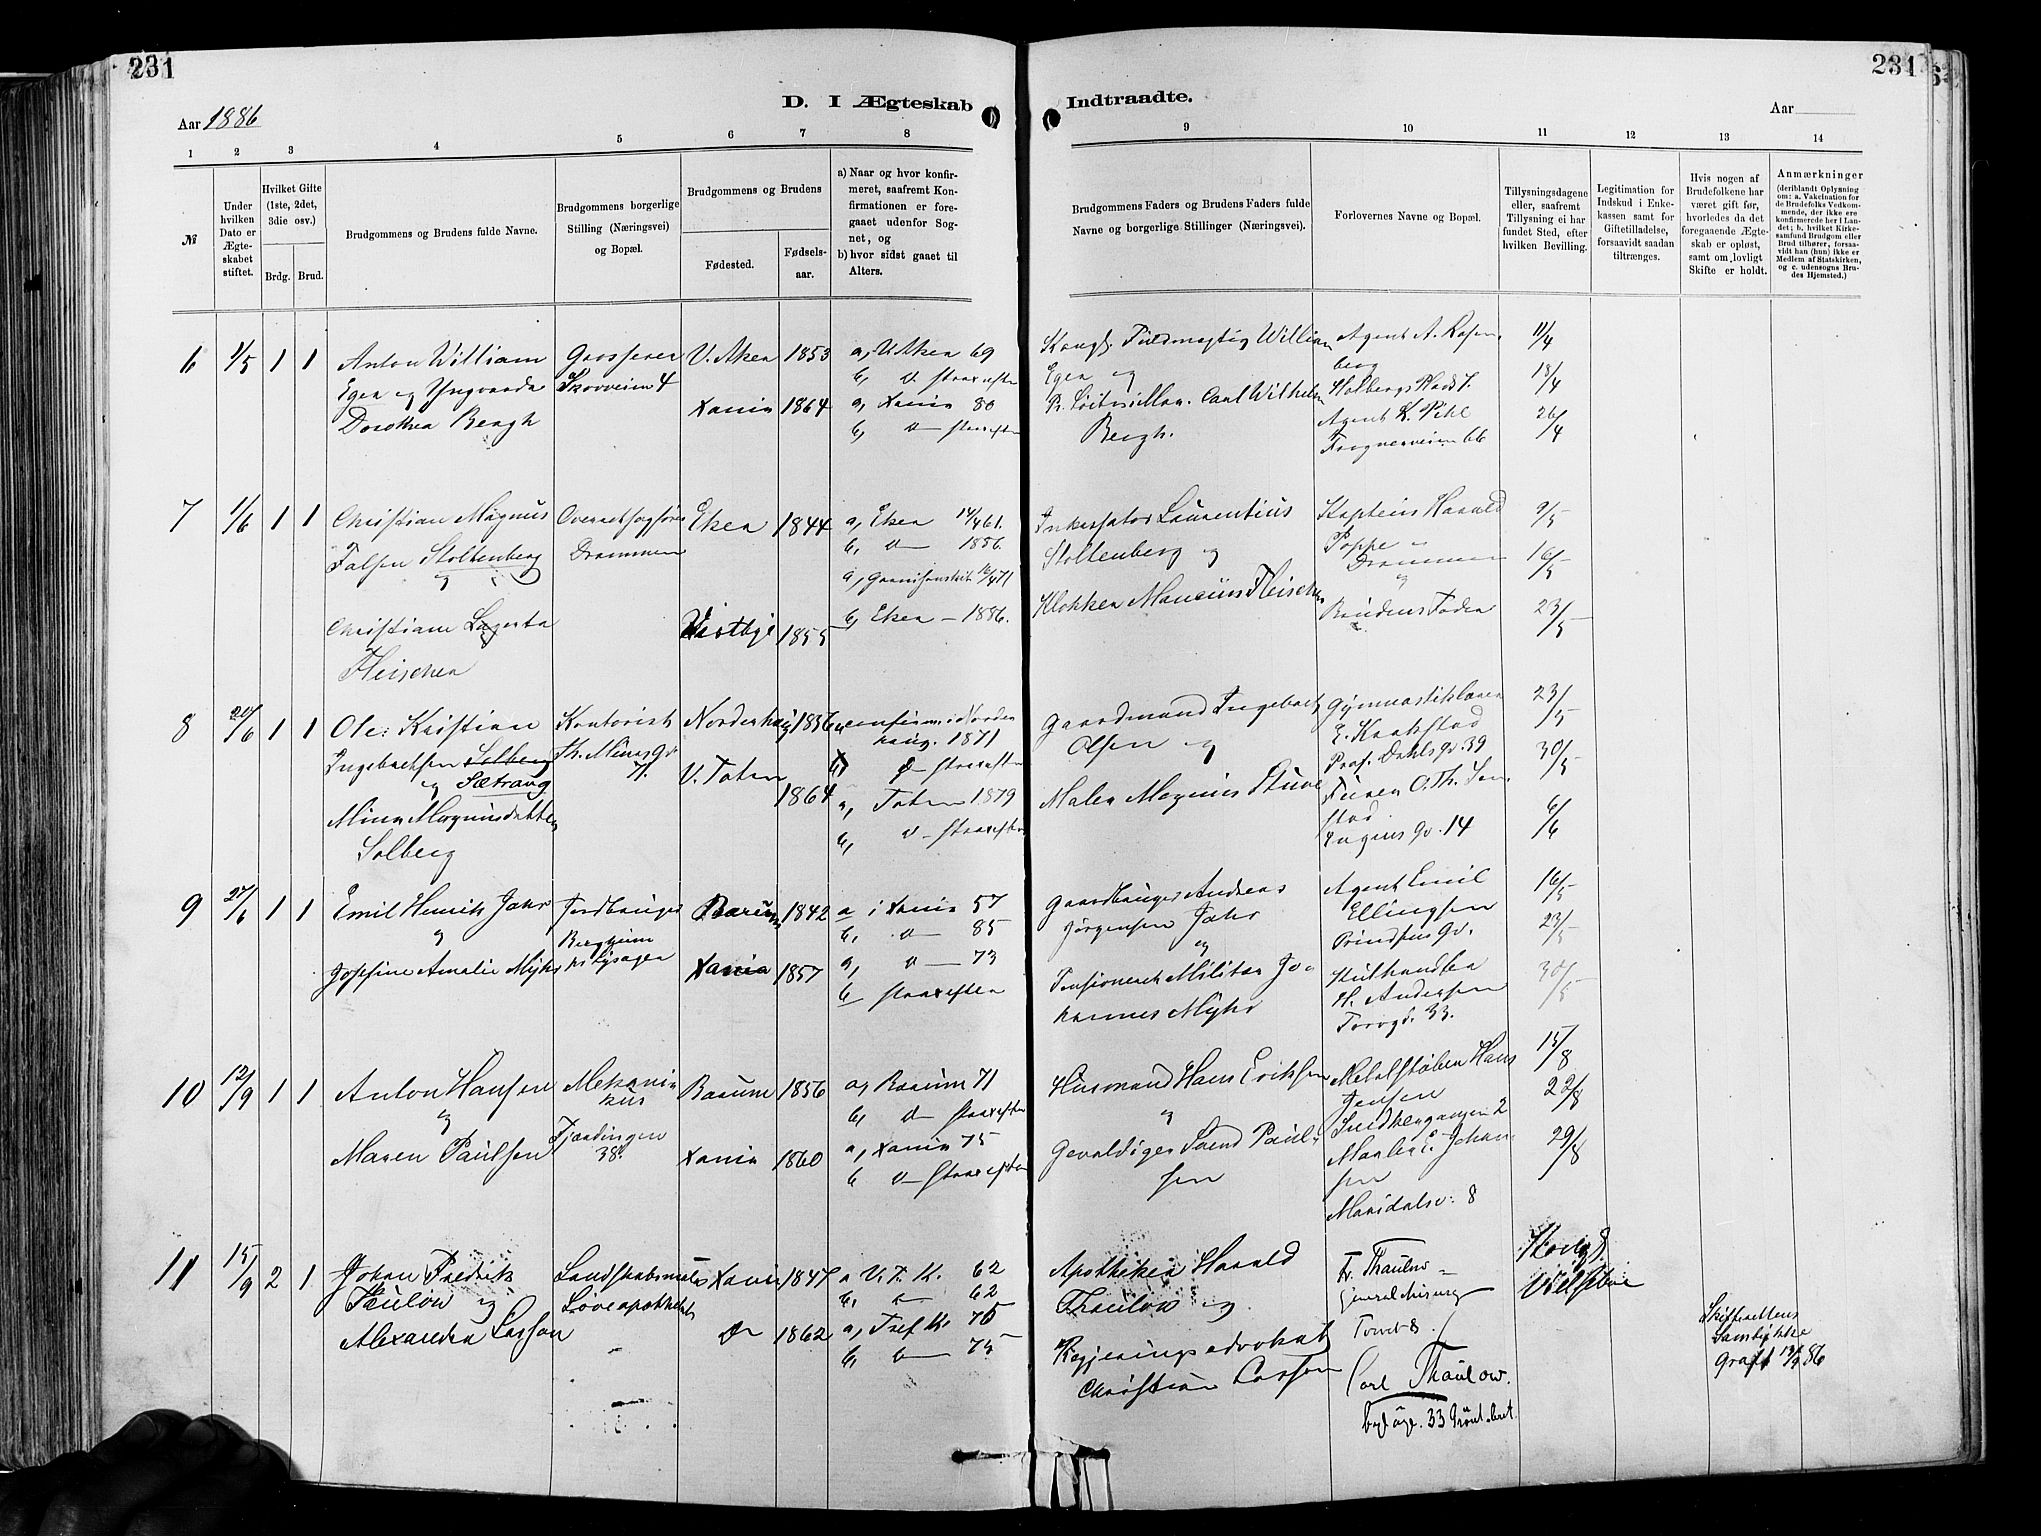 231
231
D. I Ægteskab
Indtraadte.
Aar 1886
Aar
1 2 3 4 5 6 7 8
9 10 11 12 13 14
№
Under hvilken Dato er Ægteskabet stiftet.
Hvilket Gifte (1ste, 2det, 3die osv.)
Brdg. Brud.
Brudgommens og Brudens fulde Navne.
Brudgommens borgerlige Stilling (Næringsvei) og Bopæl.
Brudgommens og Brudens
Fødested. Fødsels-aar.
a) Naar og hvor konfirmeret, saafremt Konfirmationen er foregaaet udenfor Sognet, og
b) hvor sidst gaaet til Alters.
Brudgommens Faders og Brudens Faders fulde Navne og borgerlige Stillinger (Næringsvei).
Forlovernes Navne og Bopæl.
Tillysningsdagene eller, saafremt Tillysning ei har fundet Sted, efter hvilken Bevilling.
Legitimation for Indskud i Enkekassen samt for Giftetilladelse, forsaavidt saadan tiltrænges.
Hvis nogen af Brudefolkene har været gift før, hvorledes da det foregaaende Ægteskab er opløst, samt om lovligt Skifte er holdt.
Anmærkninger
(deriblandt Oplysning om: a. Vakcination for de Brudefolks Vedkommende, der ikke ere konfirmerede her i Landet; b. hvilket Kirkesamfund Brudgom eller Brud tilhører, forsaavidt han (hun) ikke er Medlem af Statskirken, og c. udensogns Brudes Hjemsted.)
6 1/5 1 1
Anton William
Eger og Yngvarda
Dorothea Bergh
Grosserer
Skovveien 4
V. Aker 1853
Xania 1864
a, V. Aker 69
b, v. straxefter
a, Xania 80
b, v straxefter
Kongl. Fuldmægtig William
Egen og
Carl Wilhelm
Bergh.
Agent A. Rosen
berg
Holbergs Plads 7.
Agent K. Pihl
Frognerveien 66
11/4
18/4
26/4
7 1/6 1 1
Christian Magnus
Falsen Stoltenberg
og
Christiane Lagerta
Fleischer
Overretssagfører
Drammen
Eker 1844
Vestbye 1855
a, Eker 14/4 61.
b, v 1886.
a, Garnisonskir 16/4 71
b, Eker - 1886.
Inkassator Laurentius
Stoltenberg og
Klokker Marcius Fleischer
Kaptein Harald
Poppe
Drammen
og
Brudens Fader
9/5
16/5
23/5
8 20/6 1 1
Ole: Kristian
Ingebretsen Solberg
og Sætrang
Mina Magnusdatter
Solberg
Kontorist
Th. Meiers Gd.
7.
Norderhoug 1856
V. Toten
1864
a confirm i Norder
houg. 1871
b, v straxefter
a, Toten 1879
b, v straxefter
Gaardmand Ingebret
Olsen og
Maler Magnus Stuve
Gymnastiklærer
E. Kraksstad
Prof. Dahls gd. 39
Furer O. Th. Sen
stad
Eugenies Gd. 14
23/5
30/5
6/6
9 27/6 1 1
Emil Henrik Jahr
og
Josefine Amalie Myhr
Jordbruger
Bergheim
Bærum 1842
Xania 1857
a i Xania 57
b, v 85
a, v 73
b straxefter
Gaardbruger Andreas
Jørgensen Jahr
og
Pensioneret Militær Jo
hannes Myhr
Agent Emil
Ellingsen
Prindsens Gd.
Kulhandler
H. Andersen
Torvgd. 33.
16/5
23/5
30/5
10 12/9 1 1
Anton Hansen
og
Maren Paulsen
Mekani
kus
Fjerdingen
38.
Bærum 1856
Xania 1860
a, Bærum 71
b, v straxefter
a, Xania 75
b v straxefter
Husmand Hans Eriksen
og
Gevaldiger Svend Paul
sen
Metalstøber Hans
Jensen
2
Maler C. Johan
sen
Maridalsv: 8
15/8
22/8
29/8
11 15/9 2 1
Johan Fredrik
Thaulow og
Alexandra Lasson
Landskabsmaler
Løveapotheket
Xania 1847
Do 1862
a V. F. K. 62
b, v 62
a, Tref K. 75
b, v 75
Apotheker Harald
Thaulow og
Regjeringsadvokat
Christian Lasson
Fr. Thaulow
Generalchirurg
Torvet 8.
Carl Thaulow.
33
Kongl.
Vielsesbrev
Skifterettens
Samtykke
Graft 13/9 86